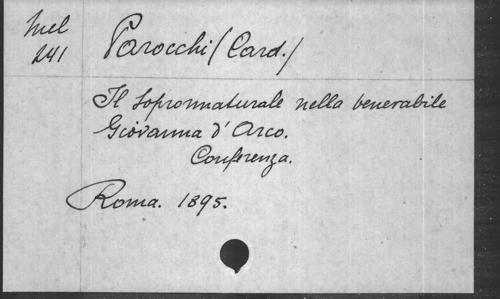 Mel
241
Parocchi (Card.)
Il soprannaturale nella venerabile
Giovanna d'Arco.
Conferenza.
Roma. 1895.